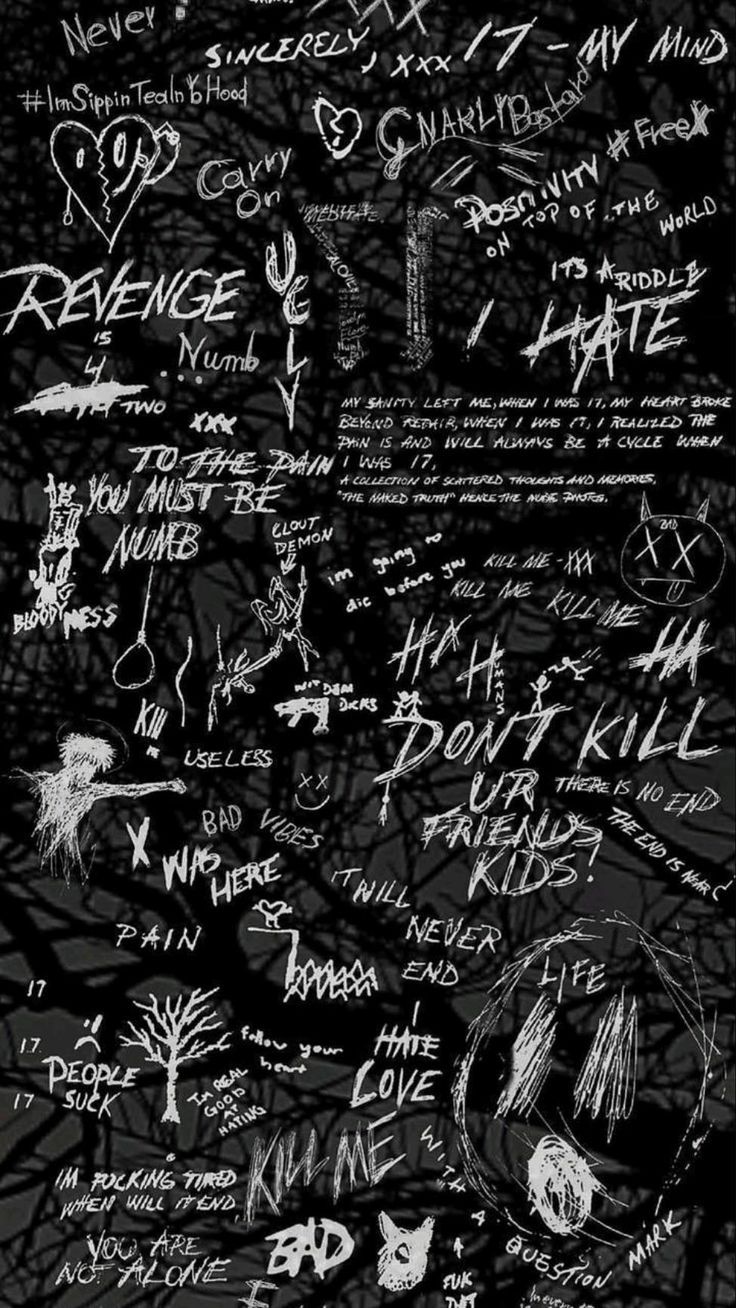 Never
SINCERELY, XXX
17 - MY MIND
#ImSippinTeaInYoHood
GNARLY Bastard
#FreeX
Carry
On
POSITIVITY
ON TOP OF THE
WORLD
REVENGE
UGLY
IT'S A RIDDLE
IS
4
TWO
...Numb
I HATE
XXX
MY SANITY LEFT ME, WHEN I WAS 17, MY HEART BROKE
BEYOND REPAIR, WHEN I WAS 17, I REALIZED THE
PAIN IS AND WILL ALWAYS BE A CYCLE WHEN
I WAS 17,
A COLLECTION OF SCATTERED THOUGHTS AND MEMORIES,
"THE NAKED TRUTH" HENCE THE NUDE PHOTOS.
TO THE PAIN
YOU MUST BE
NUMB
CLOUT
DEMON
BAD
im going to
die before you
KILL ME - XXX
KILL ME KILL ME
BLOODY MESS
HA HUMANS HA
WIT DEM
DICKS
Kill
IS
USELESS
DON'T KILL
UR
FRIENDS
KIDS!
THERE IS NO END
THE END IS NEAR
BAD VIBES
X WAS
HERE
IT WILL
NEVER
END
PAIN
LIFE
17
17
17
PEOPLE
SUCK
follow your
heart
IM REAL
GOOD
AT
HATING
I
HATE
LOVE
KILL ME
WITH A QUESTION MARK
IM FUCKING TIRED
WHEN WILL IT END
YOU ARE
NOT ALONE
BAD
I